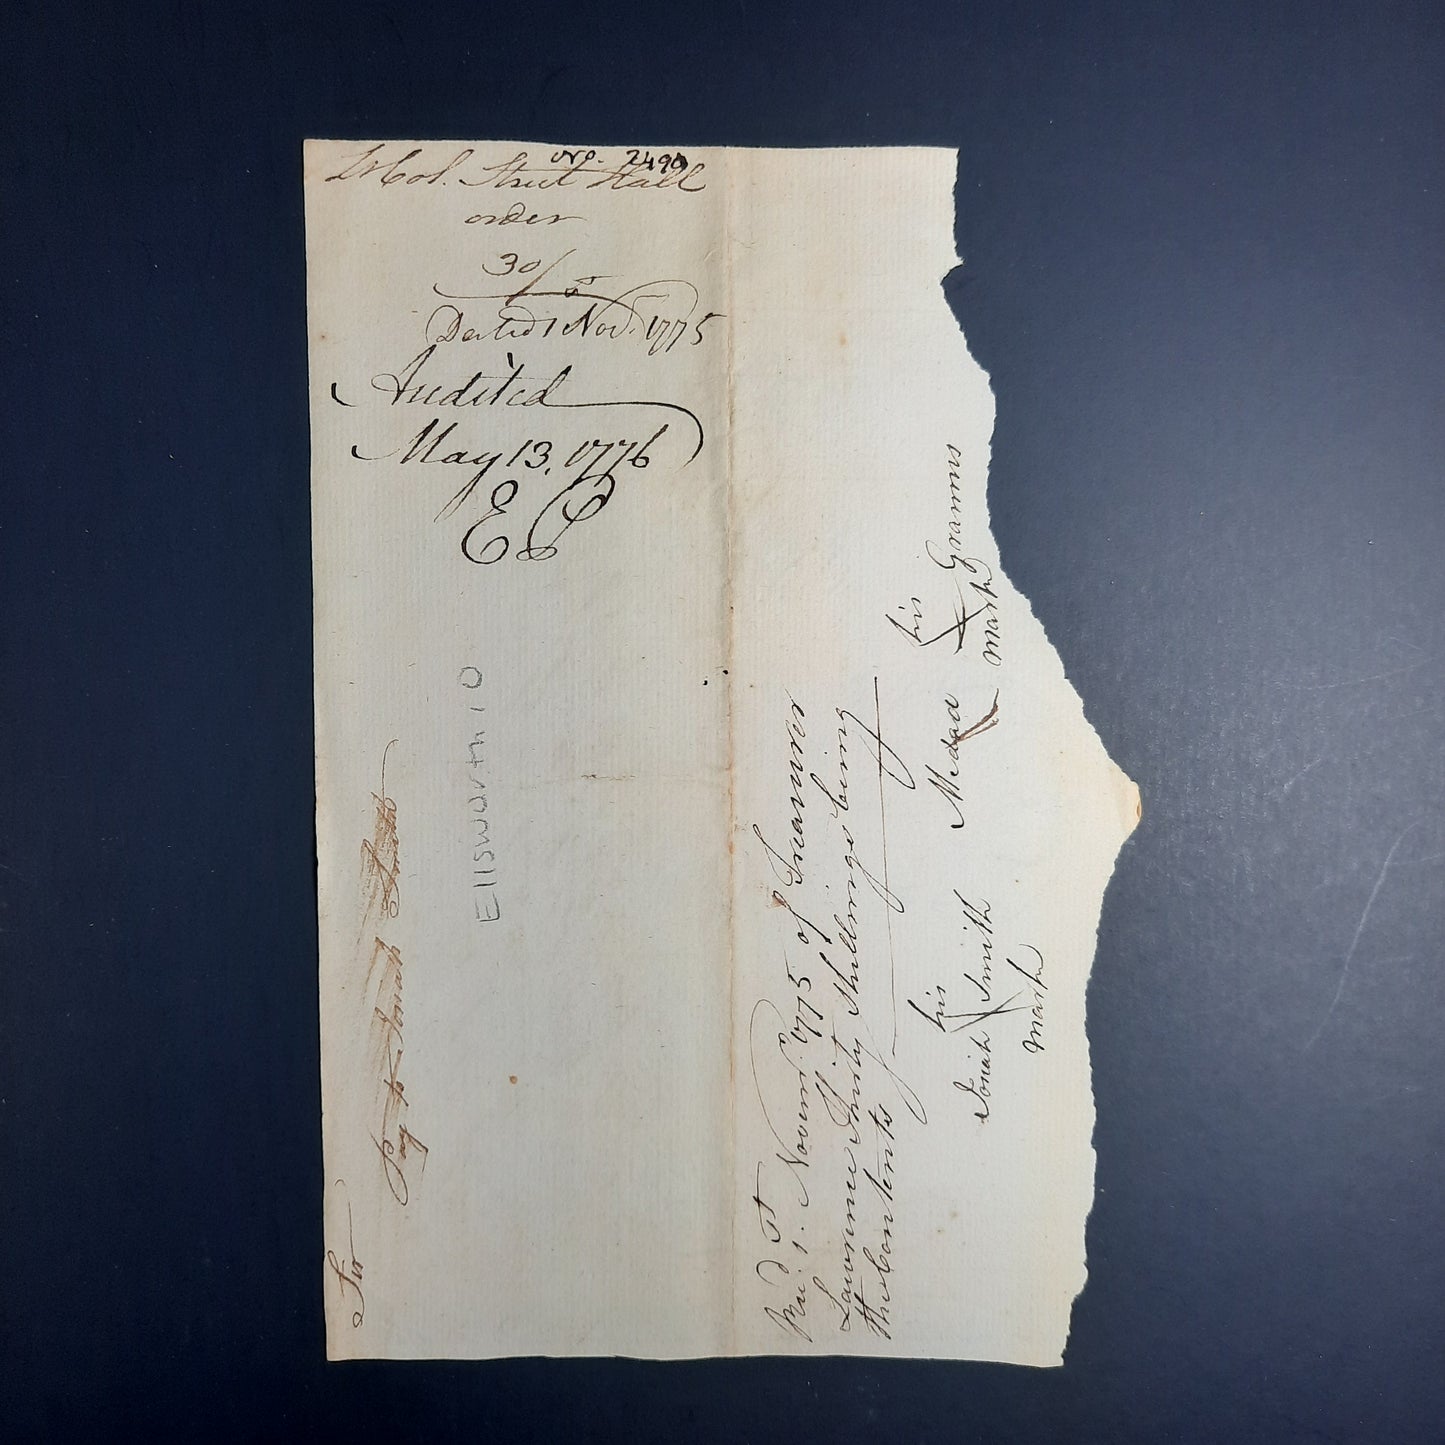 oro. 2490
Lt Col. Street Hall
order
30/
Dated 1 Nov. 1775
Audited
May 13, 1776
Ellsworth 10
Sir
Pay to Josiah Smith
Recd 1st Novemr 1775 of Treasurer
Lawrence Thirty Shillings being
the Contents
his his
Josiah X Smith Medad X Grannis
mark mark